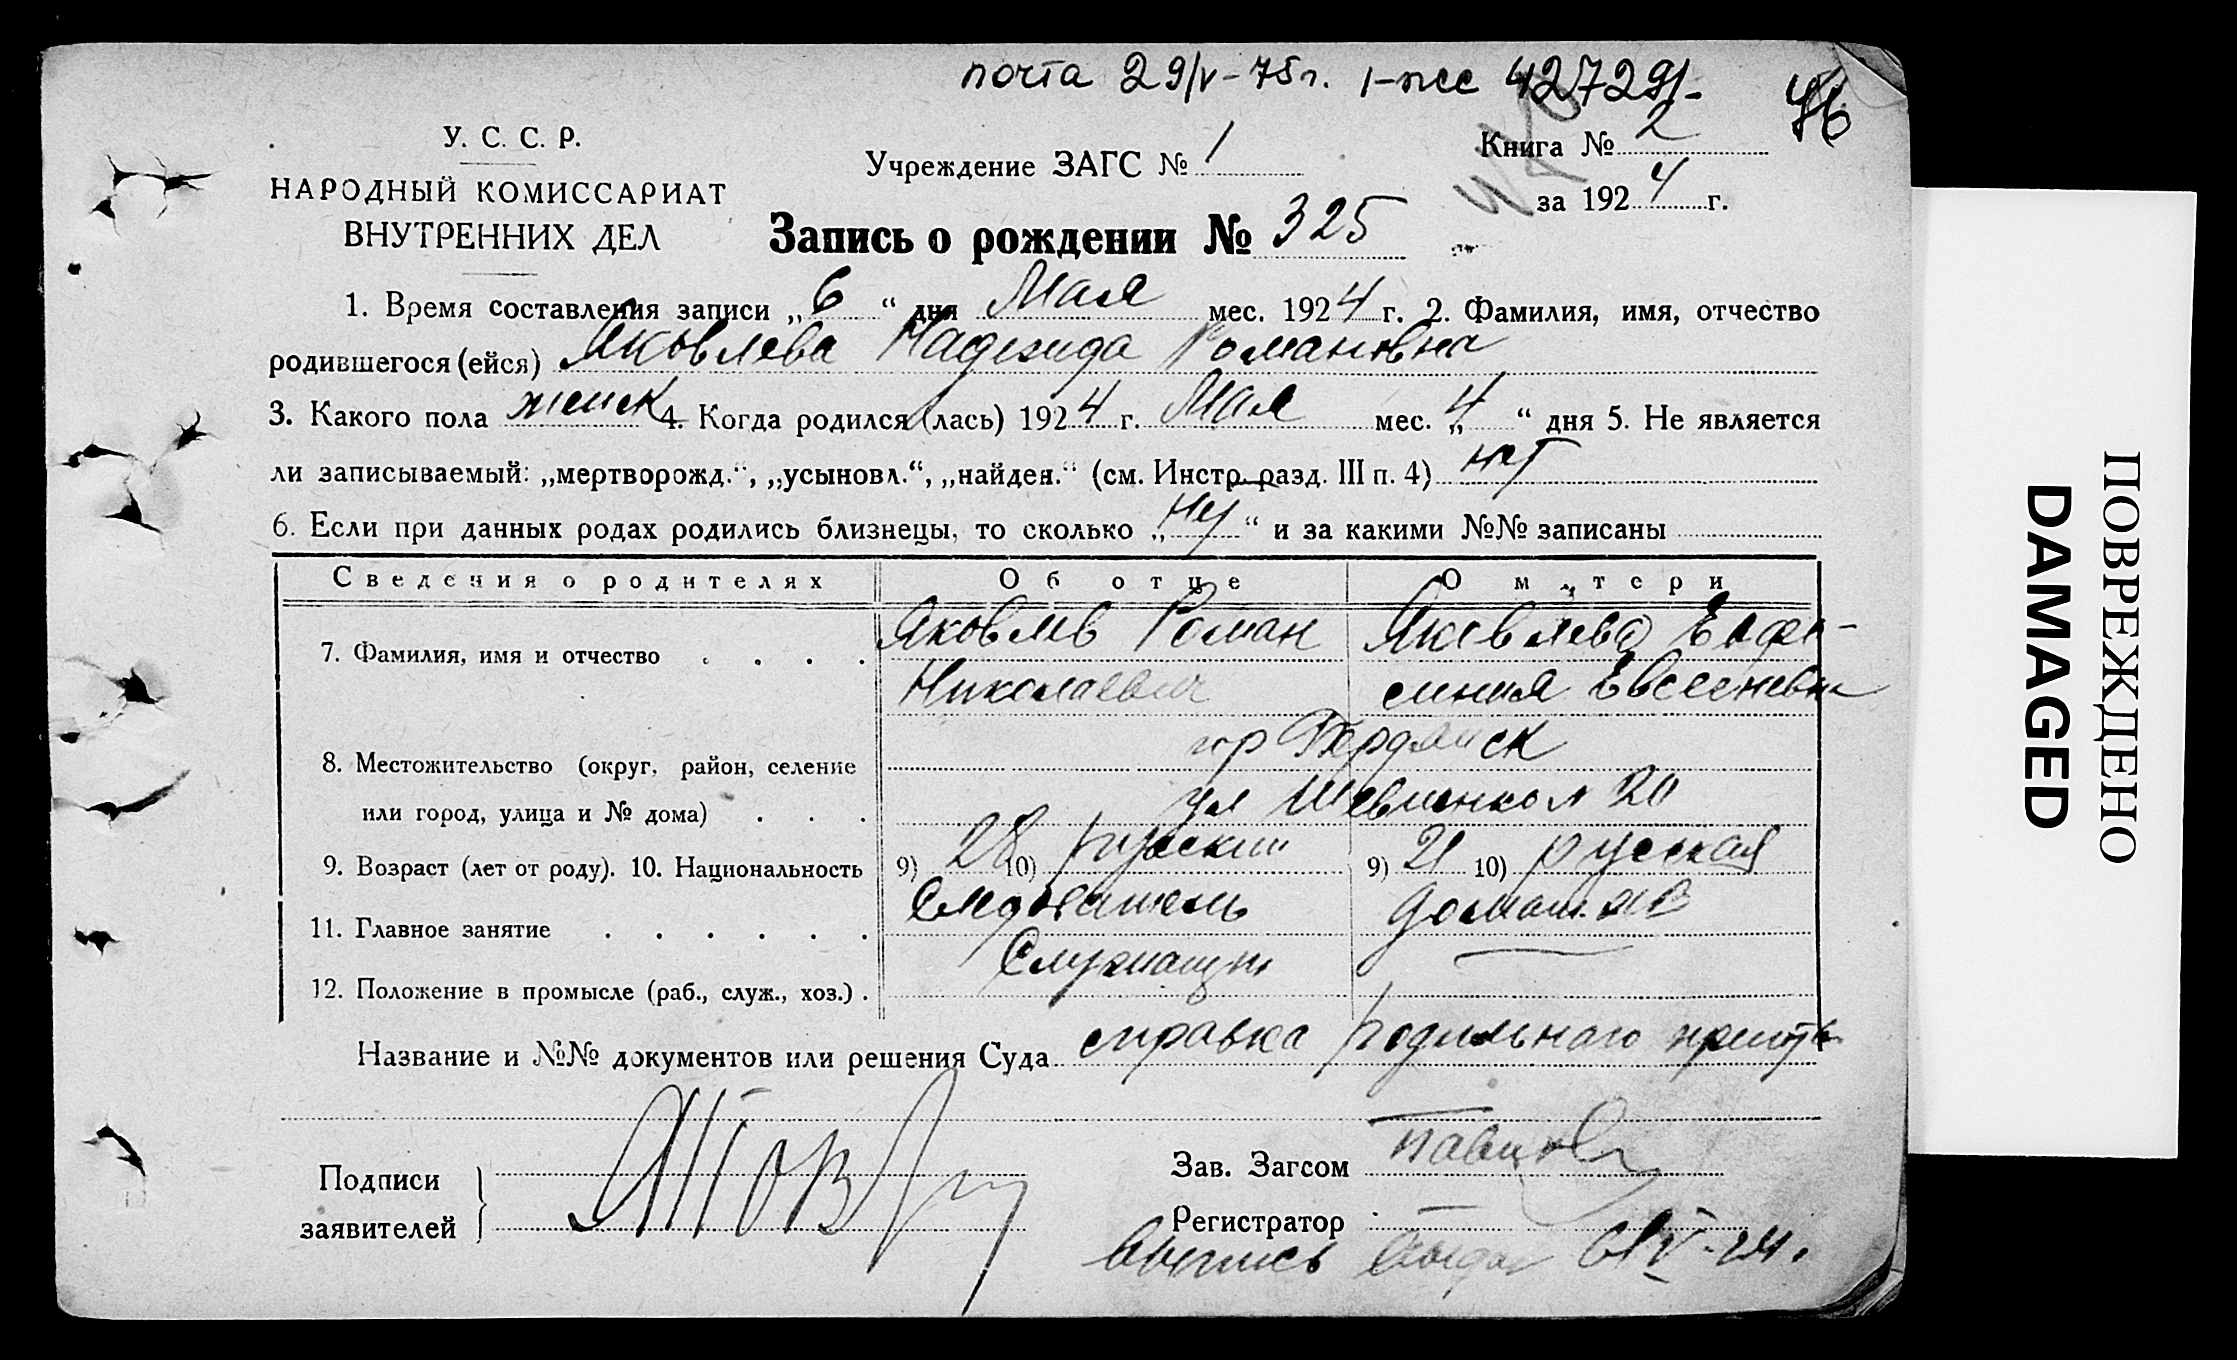 почта 29/V-75г. 1-жсс 427291-
46
У. С. С. Р.
НАРОДНЫЙ КОМИССАРИАТ
ВНУТРЕННИХ ДЕЛ
Учреждение ЗАГС № 1
Книга № 2
за 1924 г.
Запись о рождении № 325
1. Время составления записи „6“ дня Мая мес. 1924 г. 2. Фамилия, имя, отчество
родившегося (ейся) Яковлева Надежда Романовна
3. Какого пола женск 4. Когда родился (лась) 1924 г. Мая мес. „4“ дня 5. Не является
ли записываемый: „мертворожд.“, „усыновл.“, „найден.“ (см. Инстр. разд. III п. 4) нет
6. Если при данных родах родились близнецы, то сколько „нет“ и за какими №№ записаны
Сведения о родителях Об отце О матери
7. Фамилия, имя и отчество Яковлев Роман Яковлева Евфо-
Николаевич синия Евсеевна
8. Местожительство (округ, район, селение гор Бердянск
или город, улица и № дома) ул Шевченко 20
9. Возраст (лет от роду). 10. Национальность 9) 28 10) русский 9) 21 10) русская
11. Главное занятие Следователь домаш.
12. Положение в промысле (раб., служ., хоз.) Служащий
Название и №№ документов или решения Суда справка родильного приюта
Подписи
заявителей
Зав. Загсом
Регистратор
ПОВРЕЖДЕНО
DAMAGED